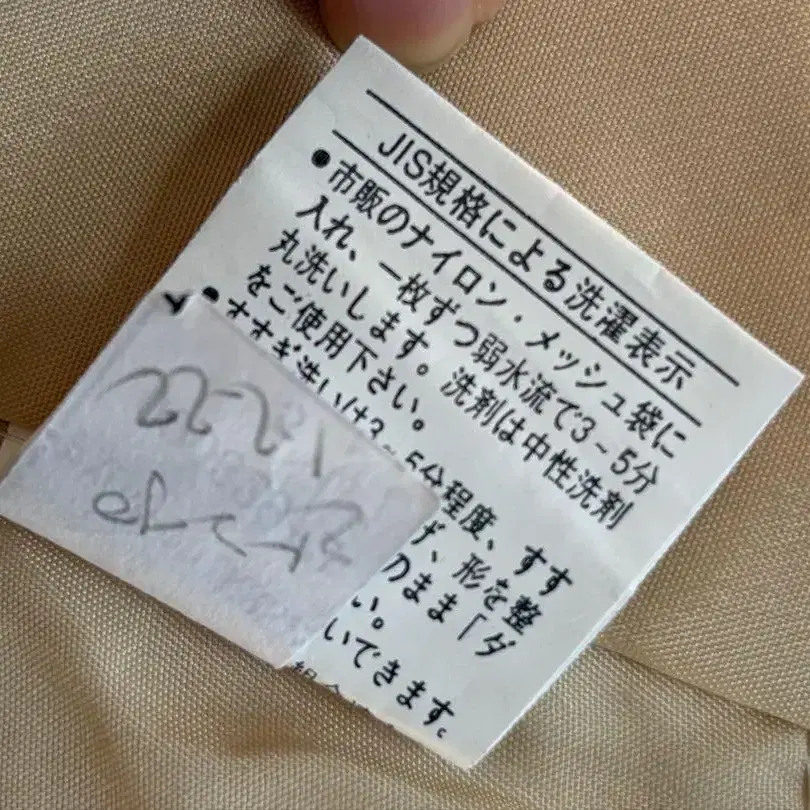 JIS規格による洗濯表示
●市販のナイロン・メッシュ袋に
入れ、一枚ずつ弱水流で3~5分
丸洗いします。洗剤は中性洗剤
をご使用下さい。
●すすぎ洗いは3~5分程度、すす
ず、形を整
のまま「ダ
い。
いできます。
12-22